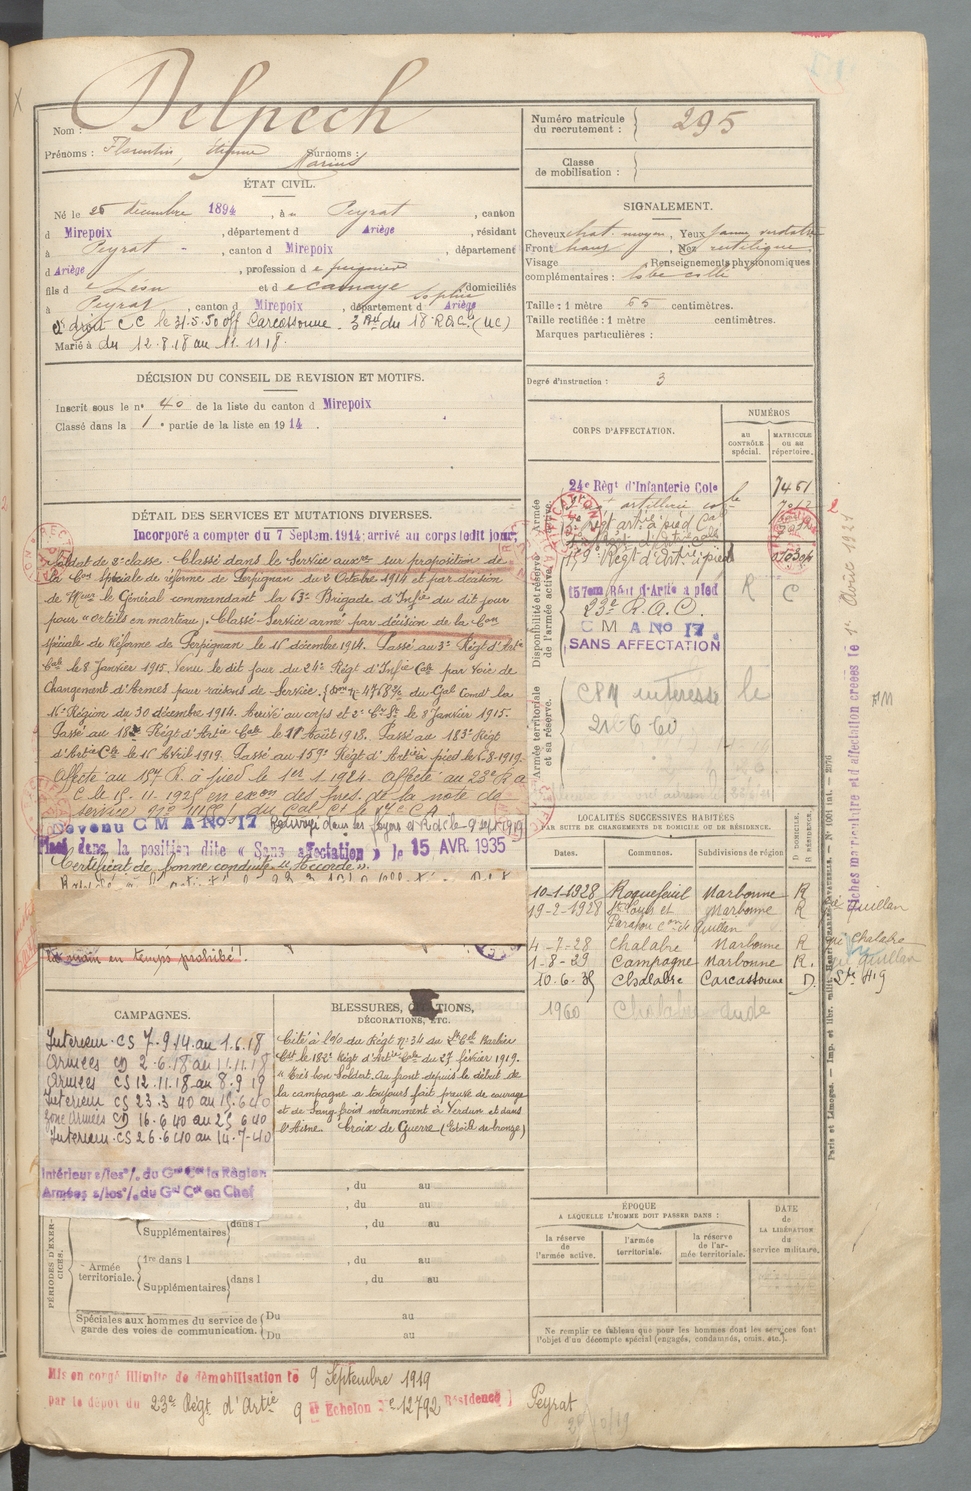 Delpech
Nom :
Prénoms : Florentin, Étienne Surnoms :
Marius
ÉTAT CIVIL.
Né le 26 décembre 1894, à Peyrat, canton
d Mirepoix, département d Ariège, résidant
à Peyrat, canton d Mirepoix, département
d Ariège, profession de
fils de Léon et de Camaye Sophie domiciliés
à Peyrat, canton d Mirepoix, département d Ariège
droit C C le 31.5.50 off Carcassonne - du 18 R.A.C. (UC)
Marié à du 12.8.18 au 11.11.18.
DÉCISION DU CONSEIL DE REVISION ET MOTIFS.
Inscrit sous le n° 40 de la liste du canton d Mirepoix
Classé dans la 1e partie de la liste en 1914.
DÉTAIL DES SERVICES ET MUTATIONS DIVERSES.
Incorporé a compter du 7 Septem. 1914; arrivé au corps ledit jour,
Soldat de 2e classe. Classé dans le Service auxre sur proposition de
la Con Spéciale de réforme de Perpignan du 2 Octobre 1914 et par décision
de Meur le Général commandant la 63e Brigade d'Infie du dit jour
pour "Orteils en marteau". Classé Service armé par décision de la Con
spéciale de Réforme de Perpignan le 11 décembre 1914. Passé au 3e Régt d'Artie
Cole le 8 Janvier 1915. Venu le dit jour du 24e Régt d'Infie Cole par voie de
Changement d'Armes pour raisons de Service. du Gal Comdt la
16e Région du 30 décembre 1914. Arrivé au corps et 2e Cr St le 8 Janvier 1915.
Passé au 182e Régt d'Artie Cole le 11 Août 1918. Passé au 183e Régt
d'Artie Cle le 16 Avril 1919. Passé au 159e Régt d'Artie à pied le 6-8-1919.
Affecté au 157 R. à pied le 1er-1-1924. Affecté au 23e R A
C le 15-11-1925 en exon des pres. de la note de
service
Devenu C M A No 17 Renvoyé dans ses foyers le 9 sept 1919
Placé dans la position dite « Sans affectation » le 15 AVR. 1935
Certificat de bonne conduite "Accordé".
en temps prohibé !
CAMPAGNES.
Intérieur. CS 7.9.14. au 1.6.18
Armées CD 2.6.18 au 11.11.18
Armées CS 12.11.18 au 8.9.19
Intérieur CS 23.3.40 au 15.6.40
Zone Armées CD 16.6.40 au 25.6.40
Intérieur. CS 26.6.40 au 14.7.40
Intérieur s/les °/. du Gal Ct la Région
Armées s/les °/. du Gal Ct en Chef
BLESSURES, CITATIONS,
DÉCORATIONS, ETC.
Cité à l'O/ du Régt No 34 du Lt Cel Barbier
Cdt le 182e Régt d'Artie Cole du 25 février 1919.
"Très bon Soldat. Au front depuis le début de
la campagne a toujours fait preuve de courage
et de Sang froid notamment à Verdun et dans
l'Aisne. Croix de Guerre (Etoile de bronze)
PÉRIODES D'EXERCICES.
, du au
, du au
Supplémentaires dans l , du au
Armée territoriale. 1re dans l , du au
Supplémentaires dans l , du au
Spéciales aux hommes du service de garde des voies de communication. Du au
Du au
Mis en congé illimité de démobilisation le 9 Septembre 1919
par le dépôt du 23e Régt d'Artie 9e Echelon No 12792 Résidence Peyrat
Numéro matricule
du recrutement : 295
Classe
de mobilisation :
SIGNALEMENT.
Cheveux chat. moyen, Yeux jaun. verdâtre
Front haut, Nez rectiligne.
Visage Renseignements physionomiques
complémentaires : lobe collé
Taille : 1 mètre 65 centimètres.
Taille rectifiée : 1 mètre centimètres.
Marques particulières :
Degré d'instruction : 3
CORPS D'AFFECTATION.
NUMÉROS
au CONTRÔLE spécial.
MATRICULE ou au répertoire.
Armée active.
24e Régt d'Infanterie Cole 7461
artillerie
régt artie à pied
Disponibilité et réserve de l'armée active.
159e Régt d'Artie à pied
157em Régt d'Artie à pied R C
23e R.A.C.
C M A No 17
SANS AFFECTATION
Armée territoriale et sa réserve.
CPM intéressé le
21-6-60
LOCALITÉS SUCCESSIVES HABITÉES
PAR SUITE DE CHANGEMENTS DE DOMICILE OU DE RÉSIDENCE.
Dates. Communes. Subdivisions de région D. DOMICILE. R. RÉSIDENCE.
10-1-1928 Roquefeuil Narbonne R
19-2-1928 St Louis et Parahou Cne de Quillan Narbonne R Quillan
4-7-28 Chalabre Narbonne R Chalabre
1-8-29 Campagne Narbonne R. Quillan
10-6-35 Chalabre Carcassonne D.
1960 Chalabre Aude
ÉPOQUE
A LAQUELLE L'HOMME DOIT PASSER DANS :
la réserve de l'armée active.
l'armée territoriale.
la réserve de l'armée territoriale.
DATE de LA LIBÉRATION du service militaire.
Ne remplir ce tableau que pour les hommes dont les services font
l'objet d'un décompte spécial (engagés, condamnés, omis, etc.).
Paris et Limoges. — Imp. et libr. milit. Henri CHARLES-LAVAUZELLE. — N° 1001 int.
Fiches matriculaire et d'affectation créées le 1er Avril 1921